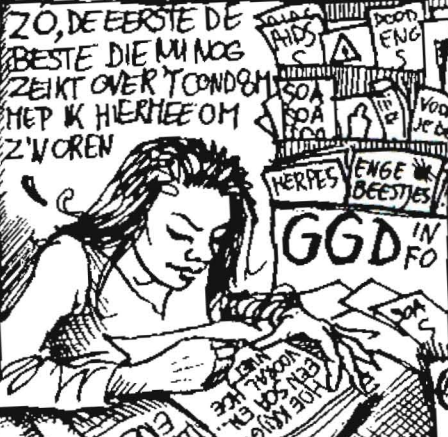 ZO, DE EERSTE DE
BESTE DIE NU NOG
ZEIKT OVER 'T CONDOOM
MEP IK HIERMEE OM
Z'N OREN
AIDS
DOOD
ENG
S
SOA
SOA
HERPES
ENGE
BEESTJES
GGD IN
FO
SOA
HOE KRIJG
EEN SOA EN
VOORAL HOE
NIET